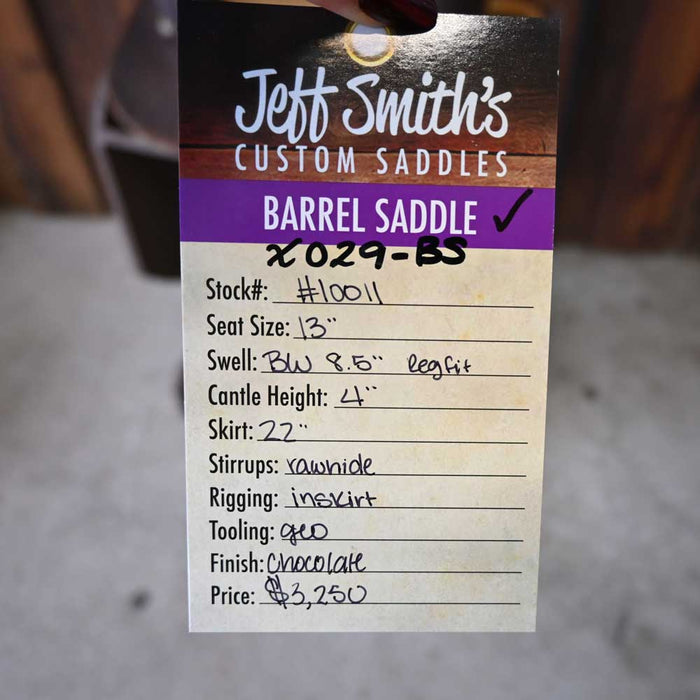 Jeff Smith's
CUSTOM SADDLES
BARREL SADDLE ✓
X029-BS
Stock#: #10011
Seat Size: 13"
Swell: BW 8.5" legfit
Cantle Height: 4"
Skirt: 22"
Stirrups: rawhide
Rigging: inskirt
Tooling: geo
Finish: Chocolate
Price: $3,250